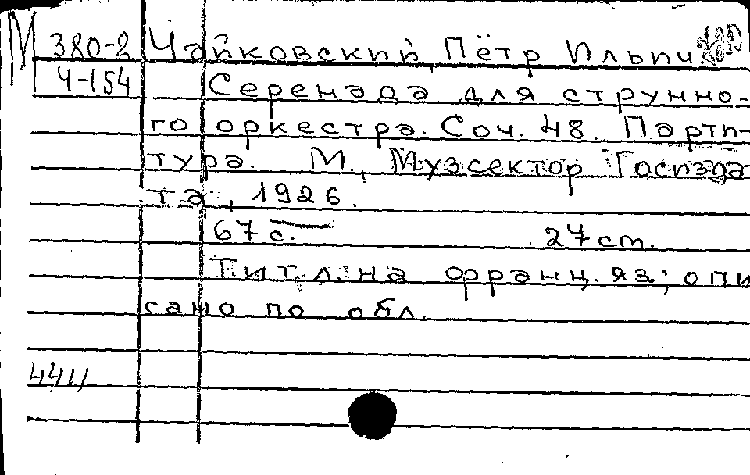 М 380-2 Чайковский, Пётр Ильич
Ч-154 Серенада для струнно-
го оркестра. Соч. 48. Парти-
тура. М., Музсектор Госизда
та, 1926.
67 с. 27 cm.
Тит. л. на франц. яз; опи
сано по обл.